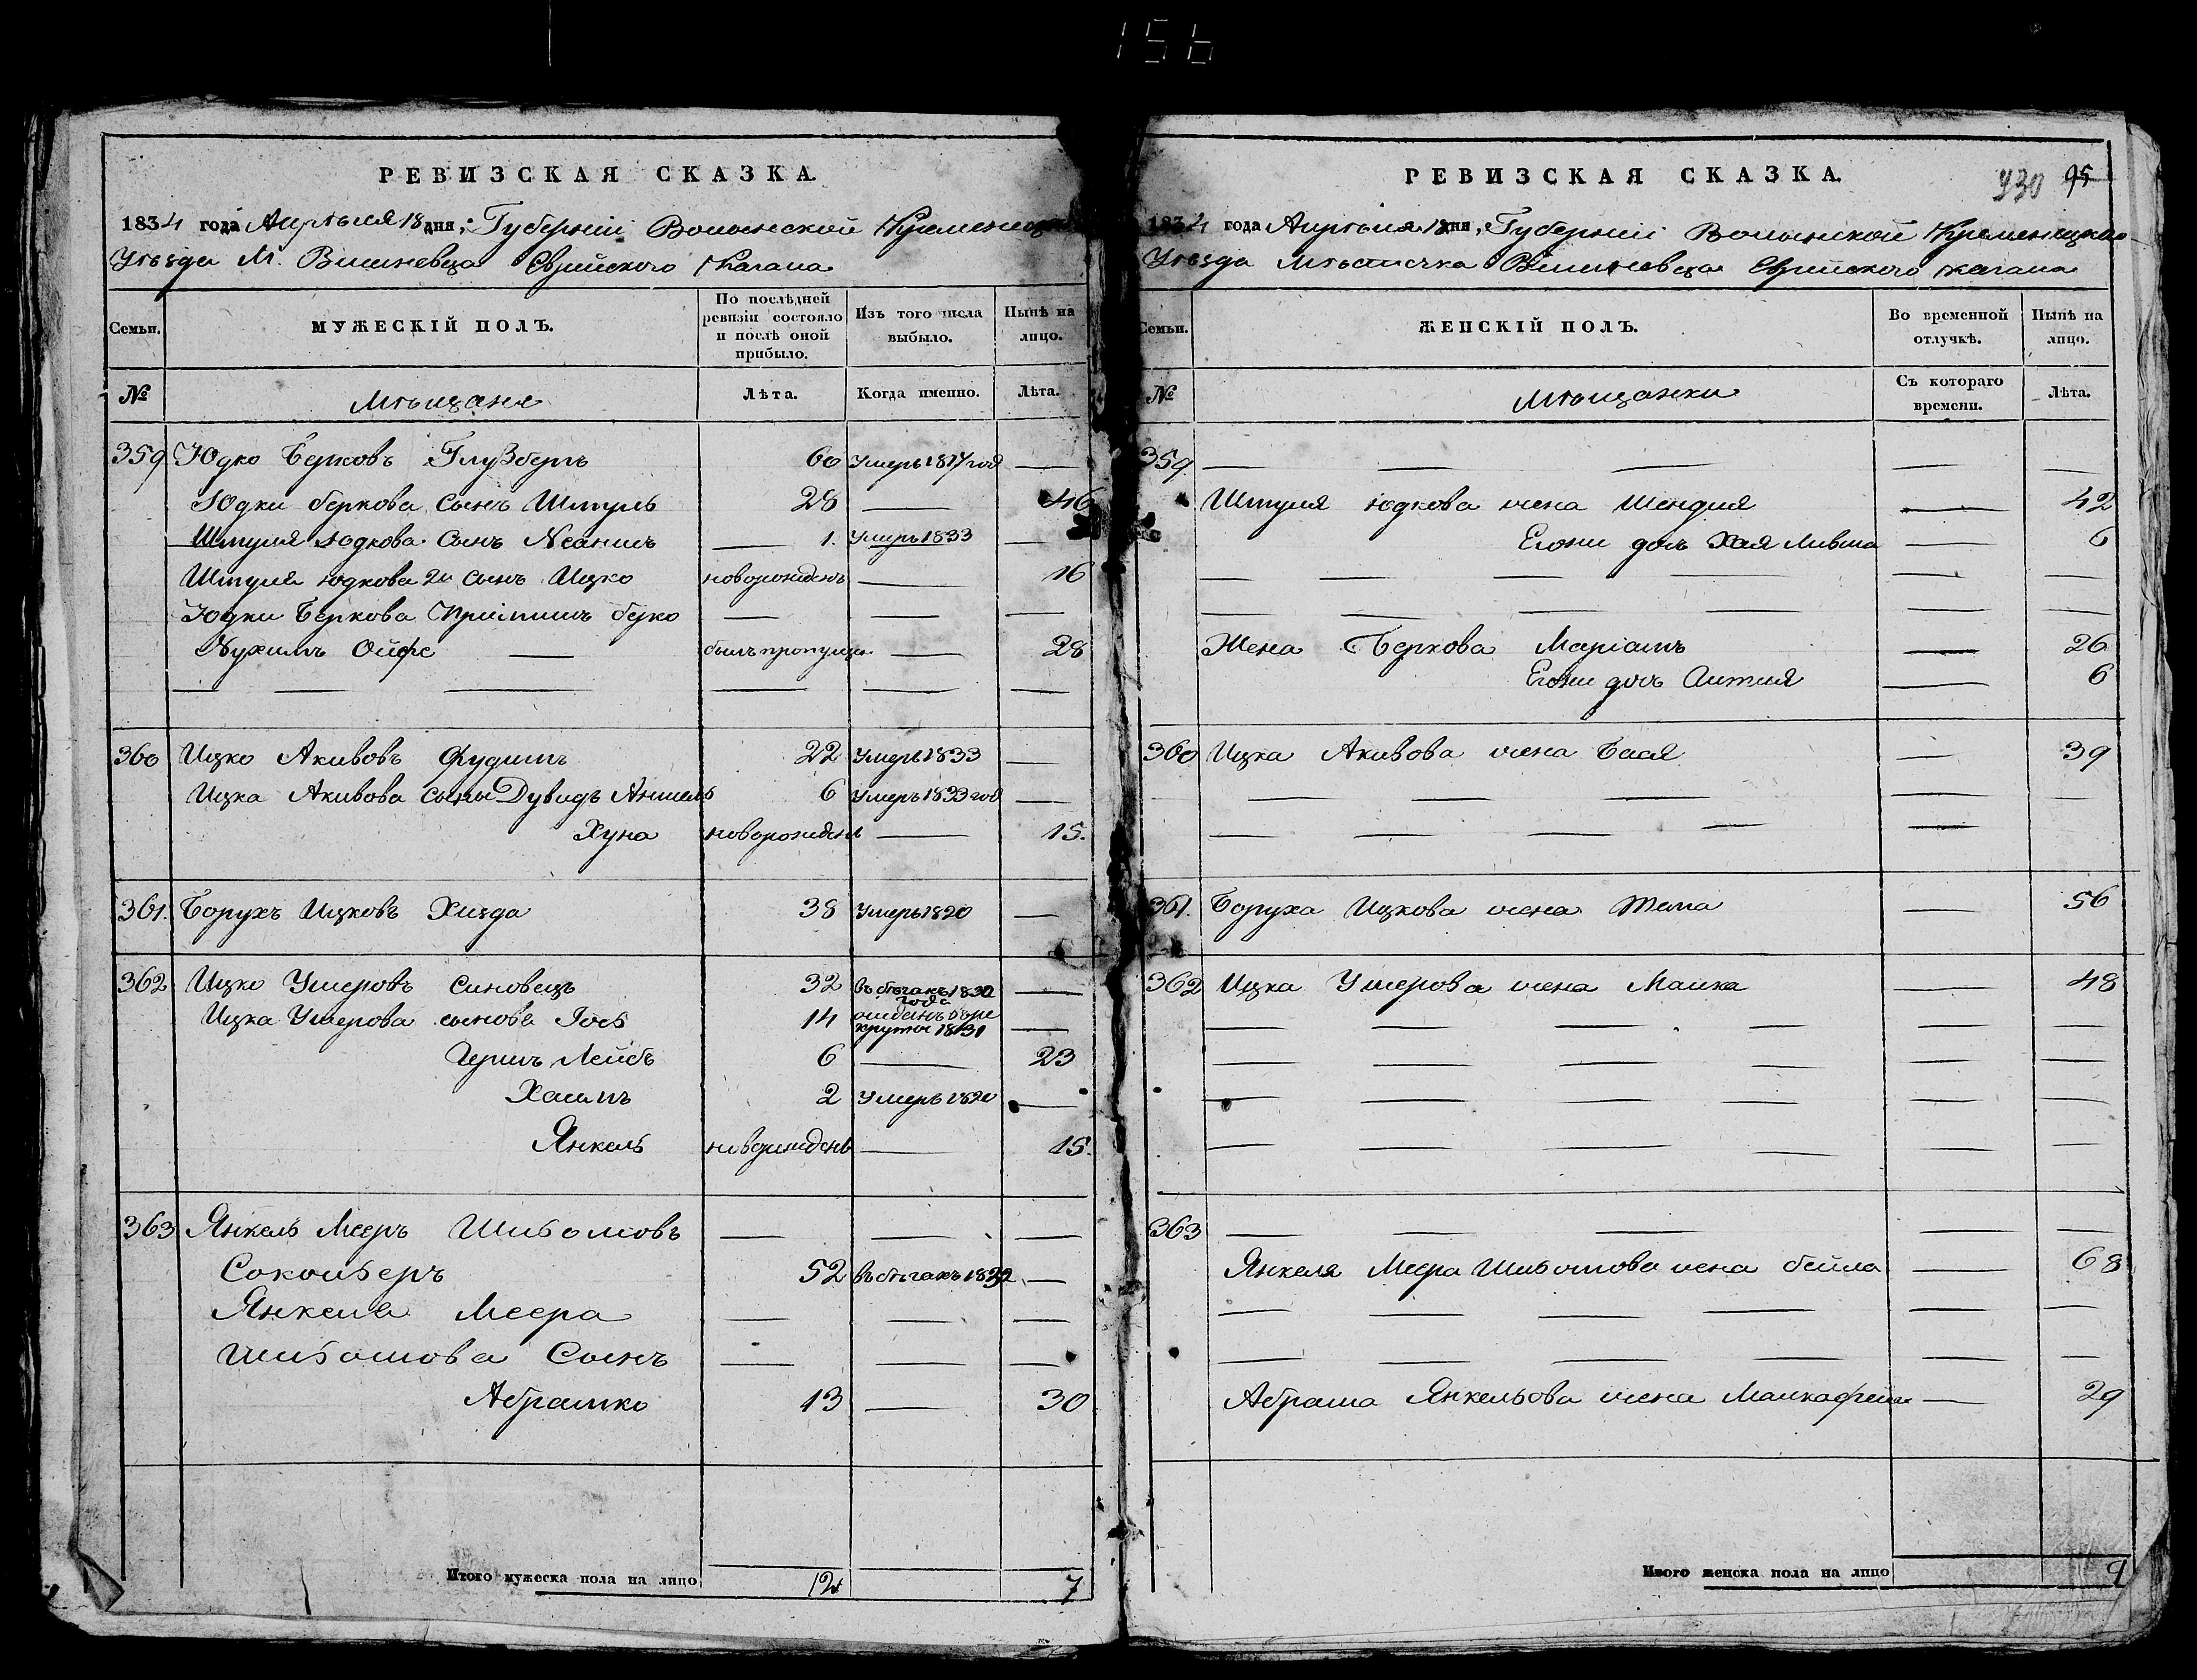 156
РЕВИЗСКАЯ СКАЗКА.
1834 года Апрѣля 18 дня, Губерніи Волынской Кременецкаго
Уѣзда М. Вишневца Еврейского Кагала
Семьи.
МУЖЕСКІЙ ПОЛЪ.
По послѣдней ревизіи состояло и послѣ оной прибыло.
Изъ того числа выбыло.
Нынѣ на лицо.
№
Мѣщане
Лѣта.
Когда именно.
Лѣта.
359 Юдко Берковъ 60 Умеръ 1817 год —
Юдки беркова Сынъ Шмуль 28 — 46
Шмуля Юдкова Сынъ 1. Умеръ 1833 —
Шмуля юдкова 2й Сынъ Ицко новорожденъ — 16
Юдки Беркова берко — — —
былъ пропущ. — 28
360 Ицко Акивовъ Фудимъ 22 Умеръ 1833 —
Ицка Акивова Сыны Дувидъ Аншель 6 Умеръ 1833 год —
Хуна новорожденъ — 15.
361. Борухъ Ицковъ Хизда 38 Умеръ 1820 —
362 Ицко Ушеровъ Синовецъ 32 въ бѣгахъ 1830 года —
Ицка Ушерова сынове Іось 14 отданъ въ ре крутъ 1831 —
Гершъ Лейбъ 6 — 23
Хаимъ 2 Умеръ 1820 —
Янкель новорожденъ — 15.
363 Янкель Мееръ — — —
52 въ бѣгахъ 1832 —
Янкеля Меера — — —
Сынъ — — —
Абрамко 13 — 30
Итого мужеска пола на лицо 12 7
РЕВИЗСКАЯ СКАЗКА.
930 95
1834 года Апрѣля 18 дня, Губерніи Волынской Кременецкаго
Уѣзда Мѣстечка Вишневца Еврейского кагала
Семьи.
ЖЕНСКІЙ ПОЛЪ.
Во временной отлучкѣ.
Нынѣ на лицо.
№
Мѣщанки
Съ котораго времени.
Лѣта.
359. — — — — —
Шмуля юдкова жена Шендля — 42
Егоже дочь Хая — 6
Жена Беркова Маріамъ — 26
Егоже дочь — 6
360 Ицка Акивова жена Бася — 39
361. Боруха Ицкова жена — 56
362 Ицка Ушерова жена Малка — 48
363 — — — — —
Янкеля Меера жена бейла — 68
Абрама Янкельова жена — 29
Итого женска пола на лицо 9